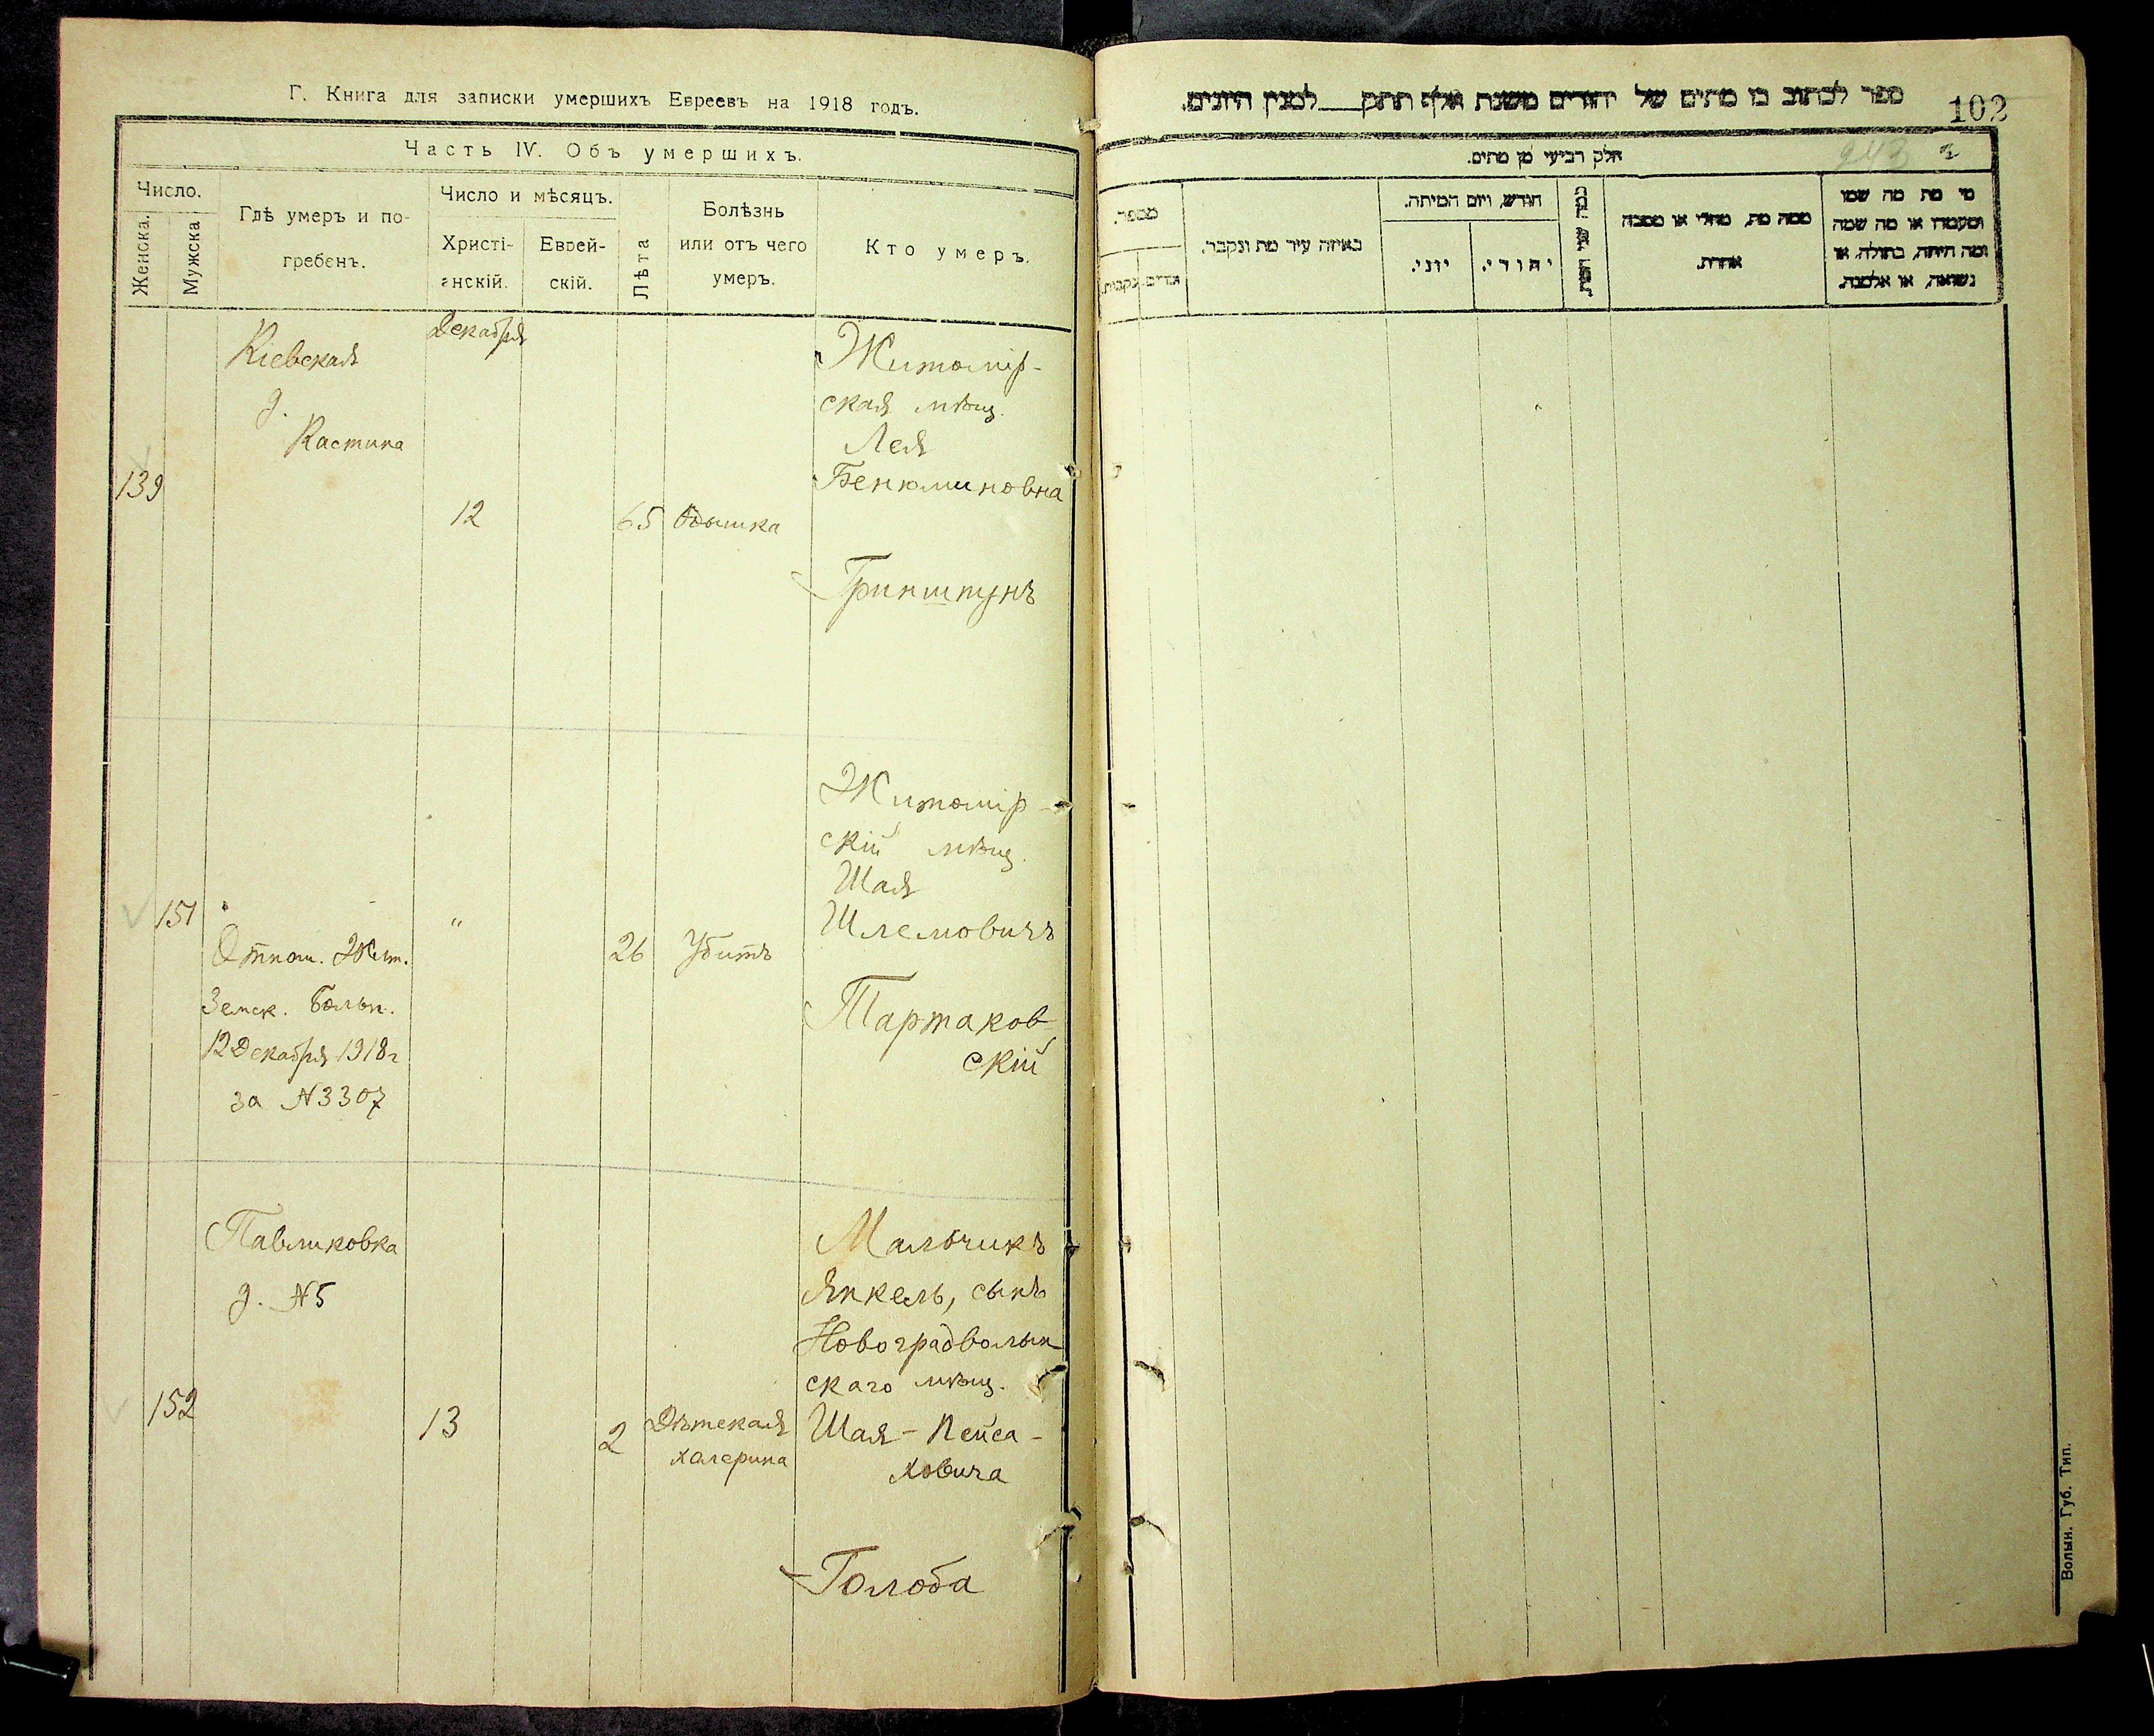 Г. Книга для записки умершихъ Евреевъ на 1918 годъ.
Часть IV. Объ умершихъ.
Число.
Женска.
Мужска
Гдѣ умеръ и по-
гребенъ.
Число и мѣсяцъ.
Христі-
анскій.
Еврей-
скій.
Лѣта
Болѣзнь
или отъ чего
умеръ.
Кто умеръ.
139
Кіевская
д.
Кастина
Декабря
12
65
Одышка
Житомір-
ская мѣщ.
Лея
Бенюминовна
Гринштунъ
151
Отнош. Жит.
Земск. Больн.
12 Декабря 1918 г
за №3307
"
26
Убитъ
Житомір-
скій мѣщ.
Шая
Шлемовичъ
Тартаков
скій
152
Павликовка
д. №5
13
2
Дѣтская
холерина
Мальчикъ
Янкель, сынъ
Новоградволын
скаго мѣщ.
Шая-Пейса-
ховича
Голоба
ספר לכתוב בו מתים של יהודים משנת אלף תתק למנין היונים.
102
חלק רביעי מן מתים.
243
מספר.
זכרים.
נקבות.
באיזה עיר מת ונקבר.
חודש, ויום המיתה.
יוני.
יהודי.
כמה שני המת.
ממה מת, מחלי או מסבה
אחרת.
מי מת מה שמו
ומעמדו או מה שמה
ומה היתה, בתולה, או
נשואה, או אלמנה.
Волын. Губ. Тип.